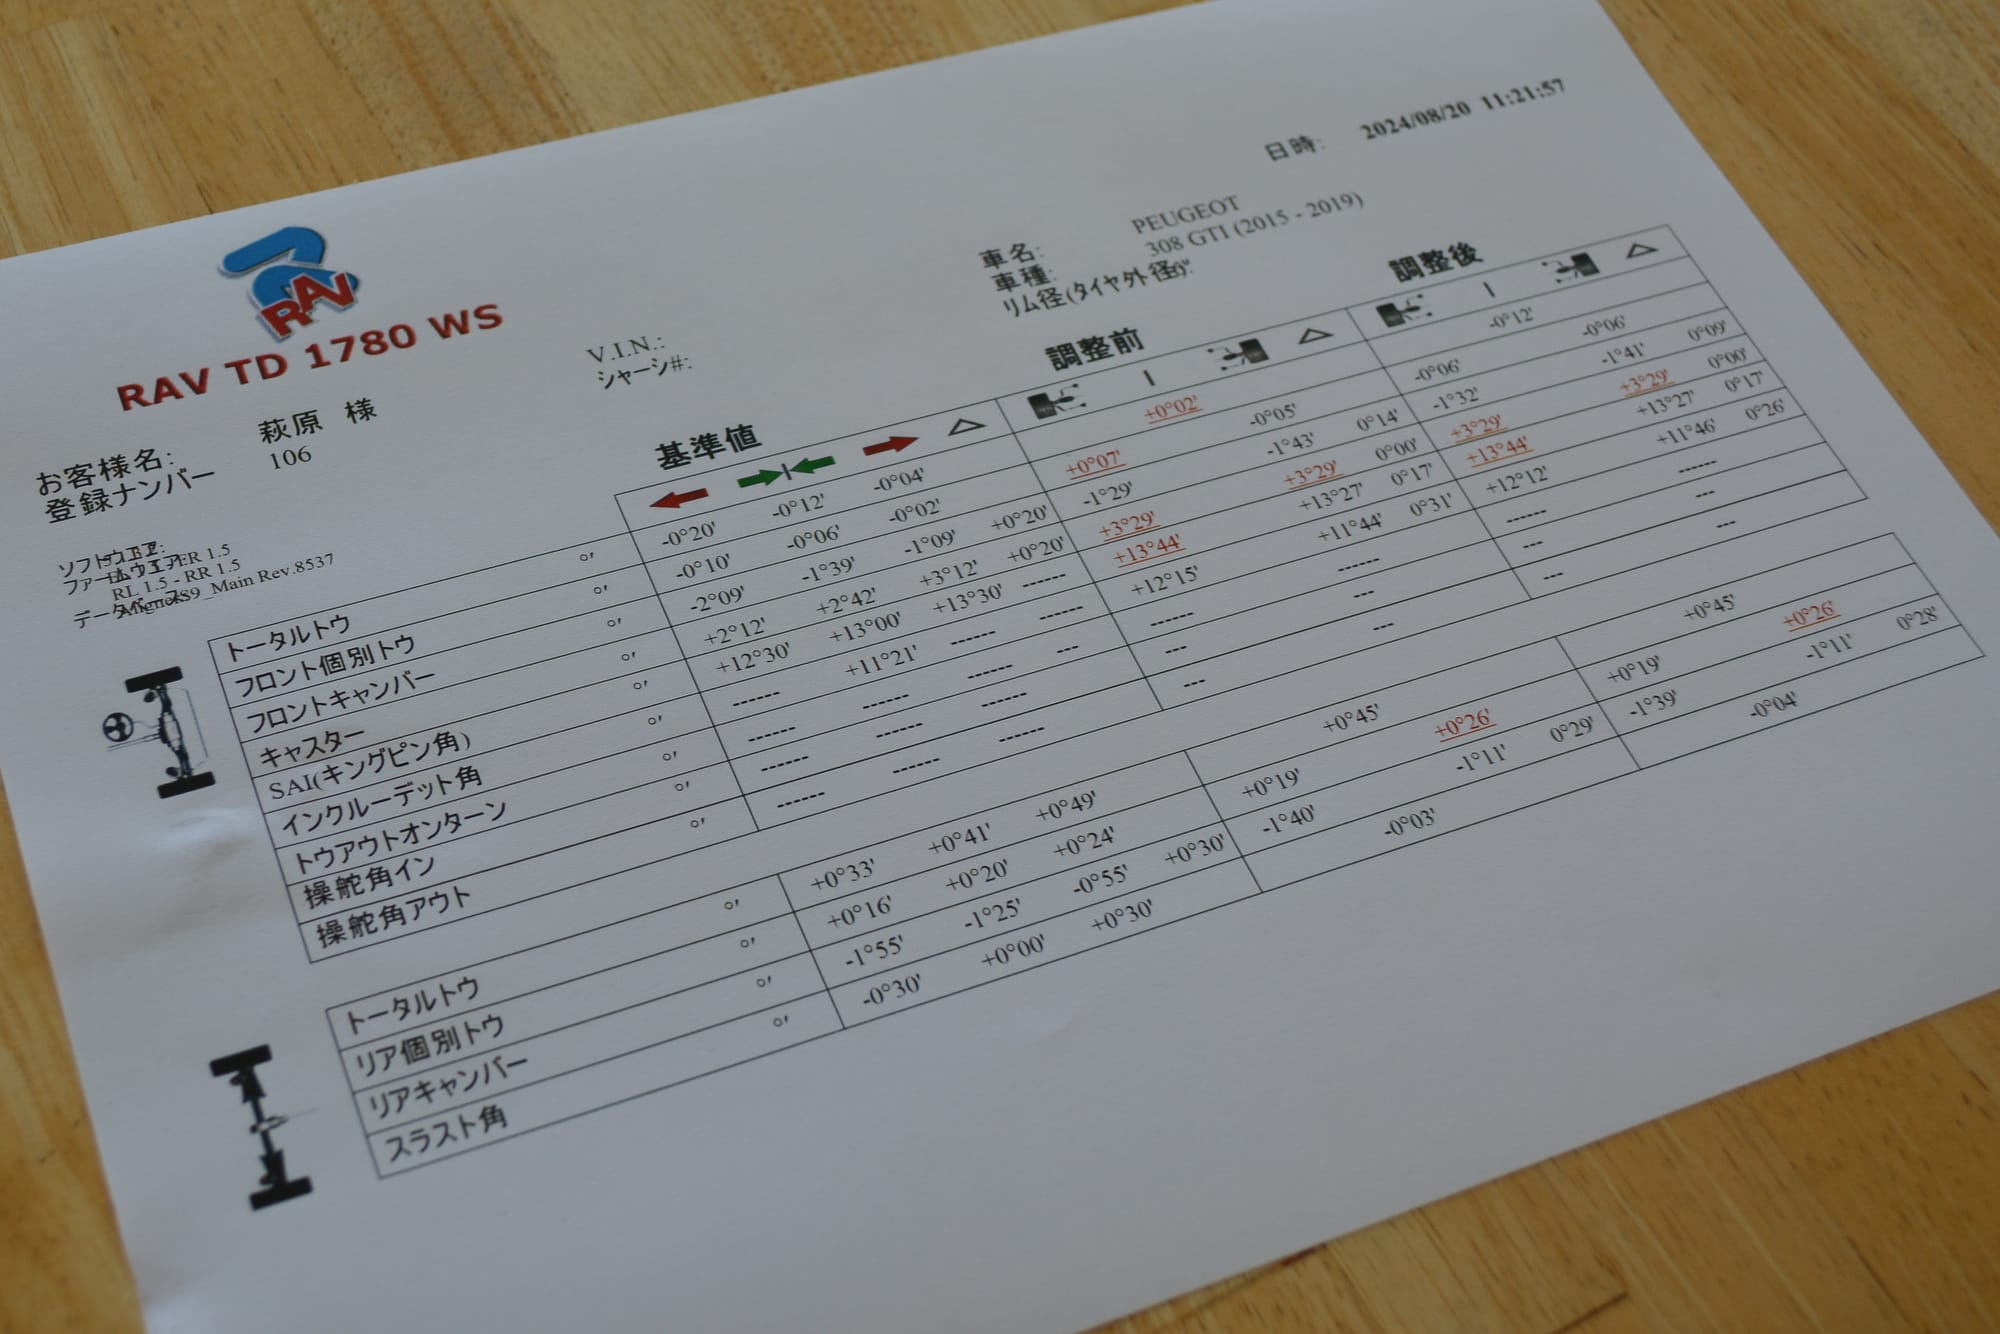 日時: 2024/08/20 11:21:57
RAV
RAV TD 1780 WS
お客様名: 萩原 様
登録ナンバー 106
V.I.N.:
シャーシ#:
車名: PEUGEOT
車種: 308 GTI (2015 - 2019)
リム径(タイヤ外径)0":
RL 1.5 - RR 1.5
_Main Rev.8537
基準値 調整前 調整後
トータルトウ °' -0°20' -0°12' -0°04' +0°02' -0°12'
フロント個別トウ °' -0°10' -0°06' -0°02' +0°07' -0°05' -0°06' -0°06'
フロントキャンバー °' -2°09' -1°39' -1°09' +0°20' -1°29' -1°43' 0°14' -1°32' -1°41' 0°09'
キャスター °' +2°12' +2°42' +3°12' +0°20' +3°29' +3°29' 0°00' +3°29' +3°29' 0°00'
SAI(キングピン角) °' +12°30' +13°00' +13°30' ------ +13°44' +13°27' 0°17' +13°44' +13°27' 0°17'
インクルーデット角 °' ------ +11°21' ------ ------ +12°15' +11°44' 0°31' +12°12' +11°46' 0°26'
トウアウトオンターン °' ------ ------ ------ --- ------ ------ ------ ------
操舵角イン °' ------ ------ ------ --- --- --- ---
操舵角アウト °' ------ ------ ------ --- --- --- ---
トータルトウ °' +0°33' +0°41' +0°49' +0°45' +0°45'
リア個別トウ °' +0°16' +0°20' +0°24' +0°19' +0°26' +0°19' +0°26'
リアキャンバー °' -1°55' -1°25' -0°55' +0°30' -1°40' -1°11' 0°29' -1°39' -1°11' 0°28'
スラスト角 °' -0°30' +0°00' +0°30' -0°03' -0°04'